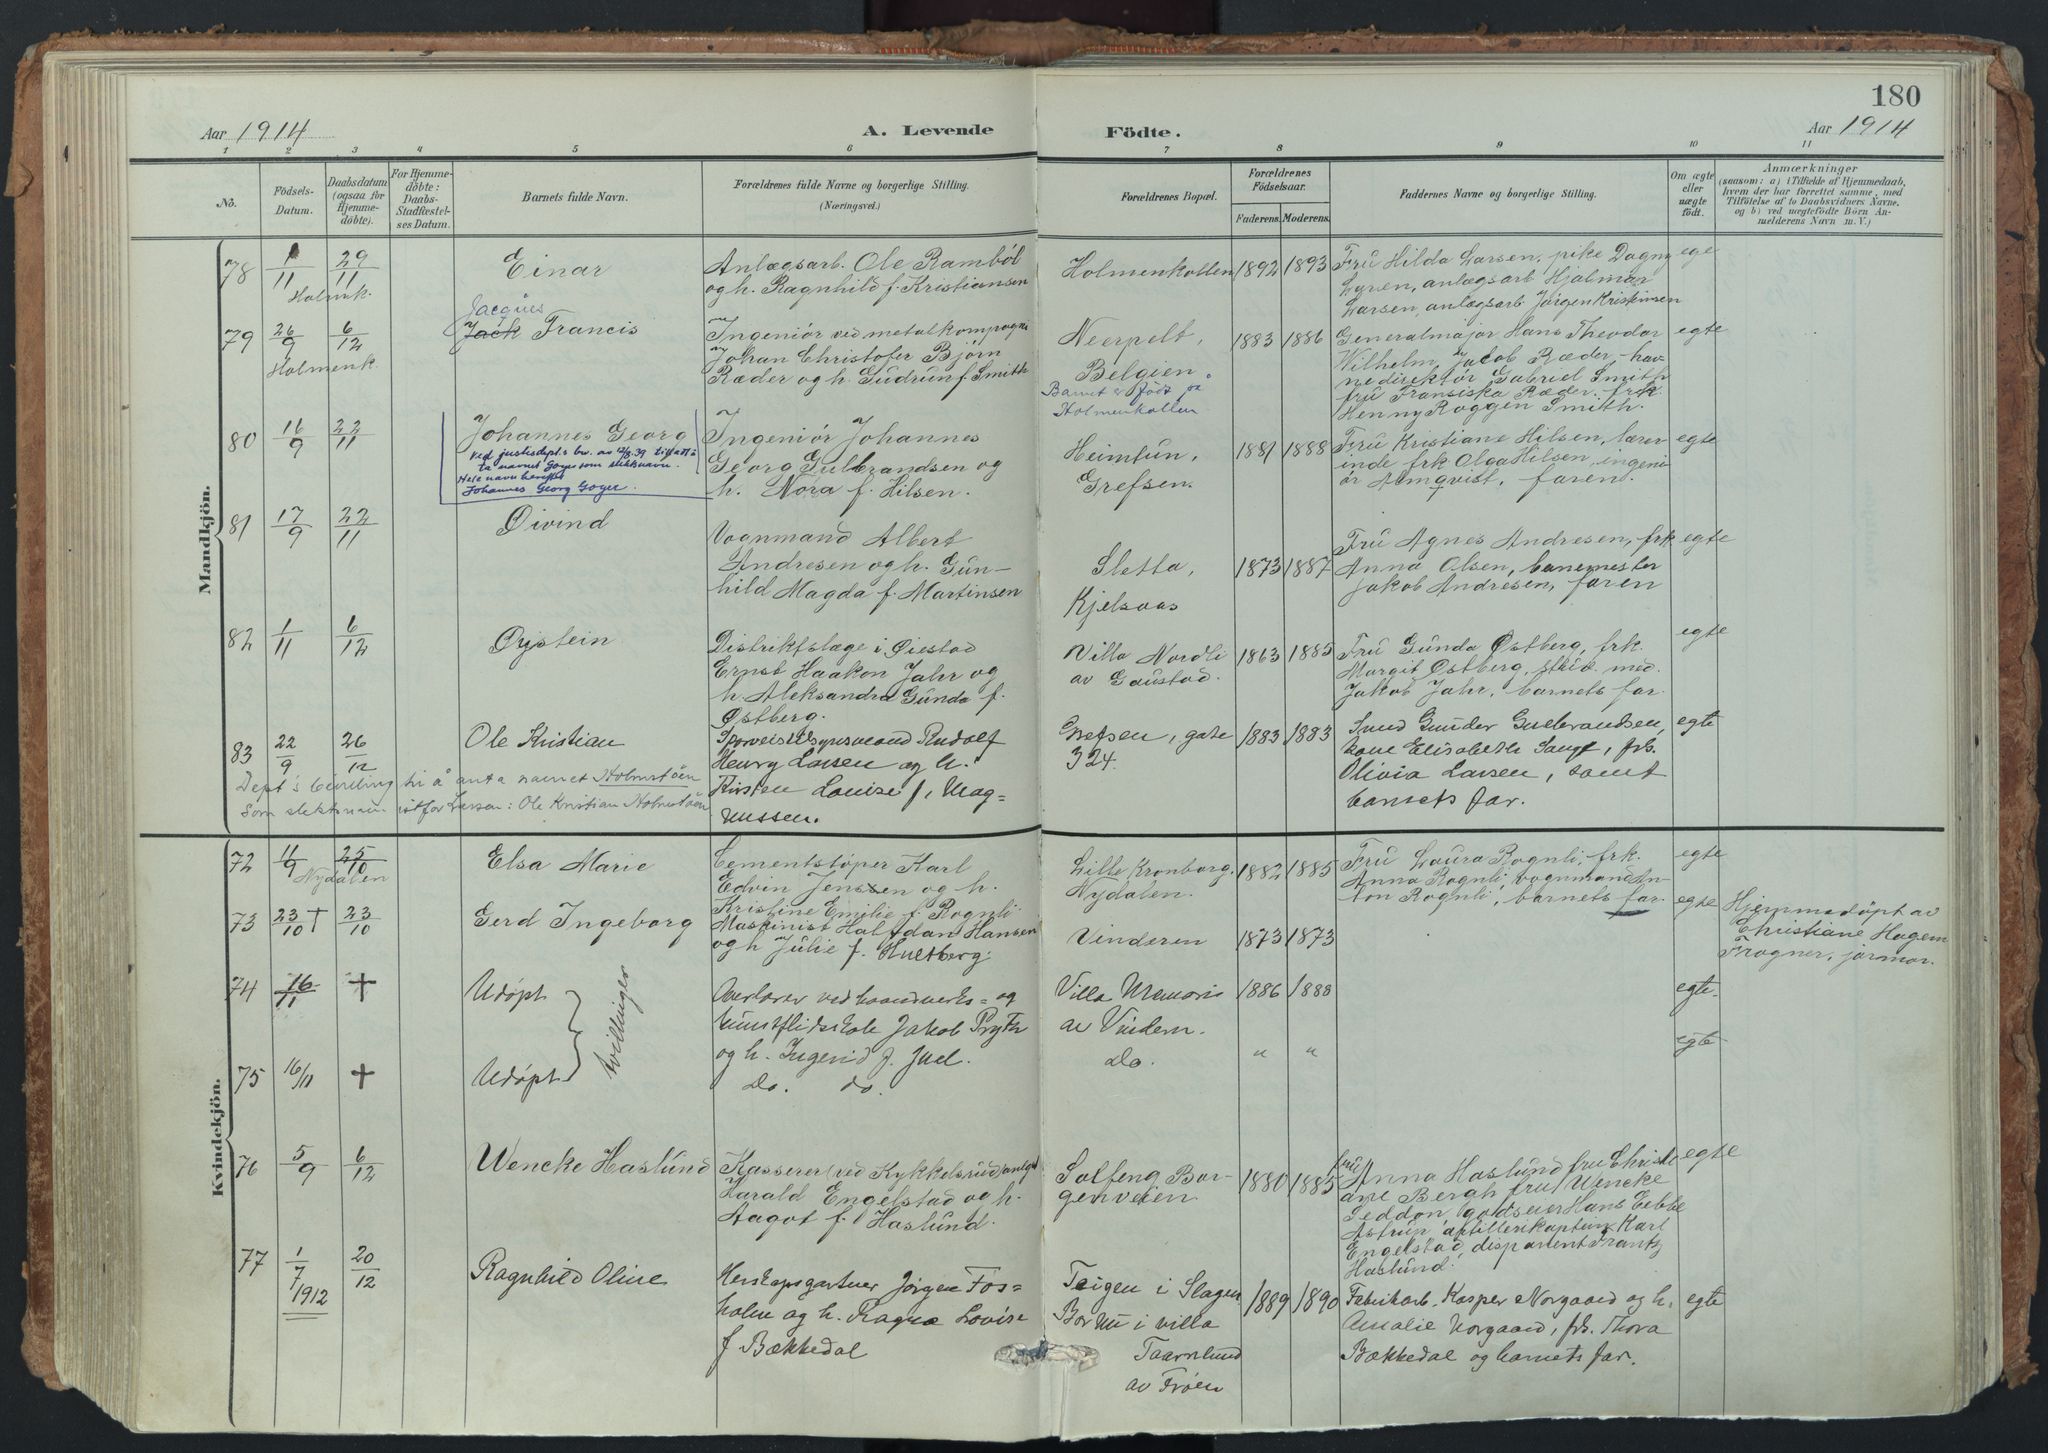 180
Aar 1914
A. Levende Födte.
Aar 1914
1 2 3 4 5 6 7 8 9 10 11
No.
Födsels-Datum.
Daabsdatum (ogsaa for Hjemmedöbte).
For Hjemmedöbte: Daabs-Stadfæstelses Datum.
Barnets fulde Navn.
Forældrenes fulde Navne og borgerlige Stilling.
(Næringsvei.)
Forældrenes Bopæl.
Forældrenes Födselsaar.
Faderens. Moderens.
Faddernes Navne og borgerlige Stilling.
Om ægte eller uægte födt.
Anmærkninger
(saasom: a) i Tilfælde af Hjemmedaab,
hvem der har forrettet samme, med
Tilföielse af to Daabsvidners Navne,
og b) ved uægtefödte Börn Anmelderens Navn m. V.)
Mandkjön.
78 1/11 29/11 Einar
Holmenk.
Anlægsarb. Ole Rambøl
og h. Ragnhild f. Kristiansen
Holmenkollen 1892 1893
Fru Hilda Larsen, pike Dagny
Lyren, anlægsarb Hjalmar
Larsen, anlægsarb Jørgen Kristensen
ege
79 26/9 6/12 Jacques
Jack Francis
Holmenk.
Ingeniør ved metalkompagni
Johan Christofer Bjørn
Ræder og h. Gudrun f. Smith
Neerpelt,
Belgien
Barnet er født på
Holmenkollen
1883 1886
Generalmajor Hans Theodor
Wilhelm Jacob Ræder, hav-
nedirektør Gabriel Smith
fru Franciska Ræder, frk.
Henny Roggen Smith.
egte
80 16/9 22/11 Johannes Georg
ved justisdept.s bv. av 12/8.39 tillatt å
ta navnet Goger som slektsnavn.
Hele navn heretter
Johannes Georg Goger.
Ingeniør Johannes
Georg Gulbrandsen og
h. Nora f. Hilsen.
Heimtun,
Grefsen.
1881 1888
Fru Kristiane Hilsen, lærer-
inde frk Olga Hilsen, ingeni-
ør Almqvist, faren.
egte
81 17/9 22/11 Øivind
Vognmand Albert
Andresen og h. Gun-
hild Magda f. Martinsen
Sletta,
Kjelsaas
1873 1887
Fru Agnes Andresen, frk
Anna Olsen, banemester
Jakob Andresen, faren
egte
82 1/11 6/12 Øystein
Distriktslæge i Øiestad
Ernst Haakon Jahr og
h. Aleksandra Gunda f.
Østberg.
Villa Nordli
av Gaustad.
1863 1885
Fru Gunda Østberg, frk.
Margit Østberg, stud. med.
Jakob Jahr, barnets far.
egte
83 22/9 26/12 Ole Kristian
Dept's bevilling til å anta navnet Holmstøen
som slektsnavn istfor Larsen: Ole Kristian Holmstøen
Sporveistilsynsmand Rudolf
Henry Larsen og h.
Kirsten Louise f. Mag-
nussen.
Grefsen, gate
3 24.
1883 1883
Smed Gunder Gulbrandsen,
kone Elisabeth Lange, frk.
Olivia Larsen, samt
barnets far.
egte
Kvindekjön.
72 11/9 25/10 Elsa Marie
Nydalen
Cementstøper Karl
Edvin Jensen og h.
Kristine Emilie f. Rognli.
Lille Kronborg,
Nydalen.
1882 1885
Fru Laura Rognli, frk.
Anna Rognli, vognmand An-
ton Rognli, barnets far.
egte
73 23/10 † 23/10 Gerd Ingeborg
Maskinist Halfdan Hansen
og h Julie f. Hultberg.
Vinderen 1873 1873
egte
Hjemmedøpt av
Christiane Hagem
Frogner, jormor.
74 16/11 † Udøpt
Overlærer ved haandverks- og
kunstflidskole Jakob Prytz
og h. Ingerid f. Juel.
Villa Memoria
av Vindern.
1886 1888
egte
tvillinger
75 16/11 † Udøpt
Do. do.
Do.
" "
egte
76 5/9 6/12 Wencke Haslund
Kasserer (ved Kykkelsrud) anlæg
Harald Engelstad og h.
Aagot f. Haslund.
Solfeng Bor-
genveien
1880 1885
fru Anna Haslund fru Christi-
ane Bergh fru Wencke
Seddon, godseier Hans Ebbe
Astrup, artillerikaptein Karl
Engelstad, disponent Frantz
Haslund.
egte
77 1/7 1912 20/12 Ragnhild Oline
Herskapsgartner Jørgen Fos-
holm og h. Ragna Lovise
f Bækkedal
Teigen i Slagen
Bor nu i villa
Taarnlund
av Frøen
1889 1890
Fabrikarb. Kasper Norgaard og h.
Amalie Norgaard, frk. Thora
Bækkedal og barnets far.
egte